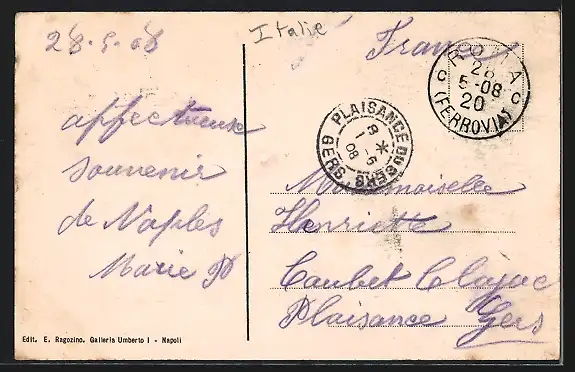 28.5.08
Italie
France
ROMA
28
5-08
20
C C
(FERROVIA)
PLAISANCE DU GERS
GERS
affectueux
souvenir
de Naples
Marie P
Mademoiselle
Henriette
Caubet
Plaisance Gers
Edit. E. Ragozino. Galleria Umberto I - Napoli